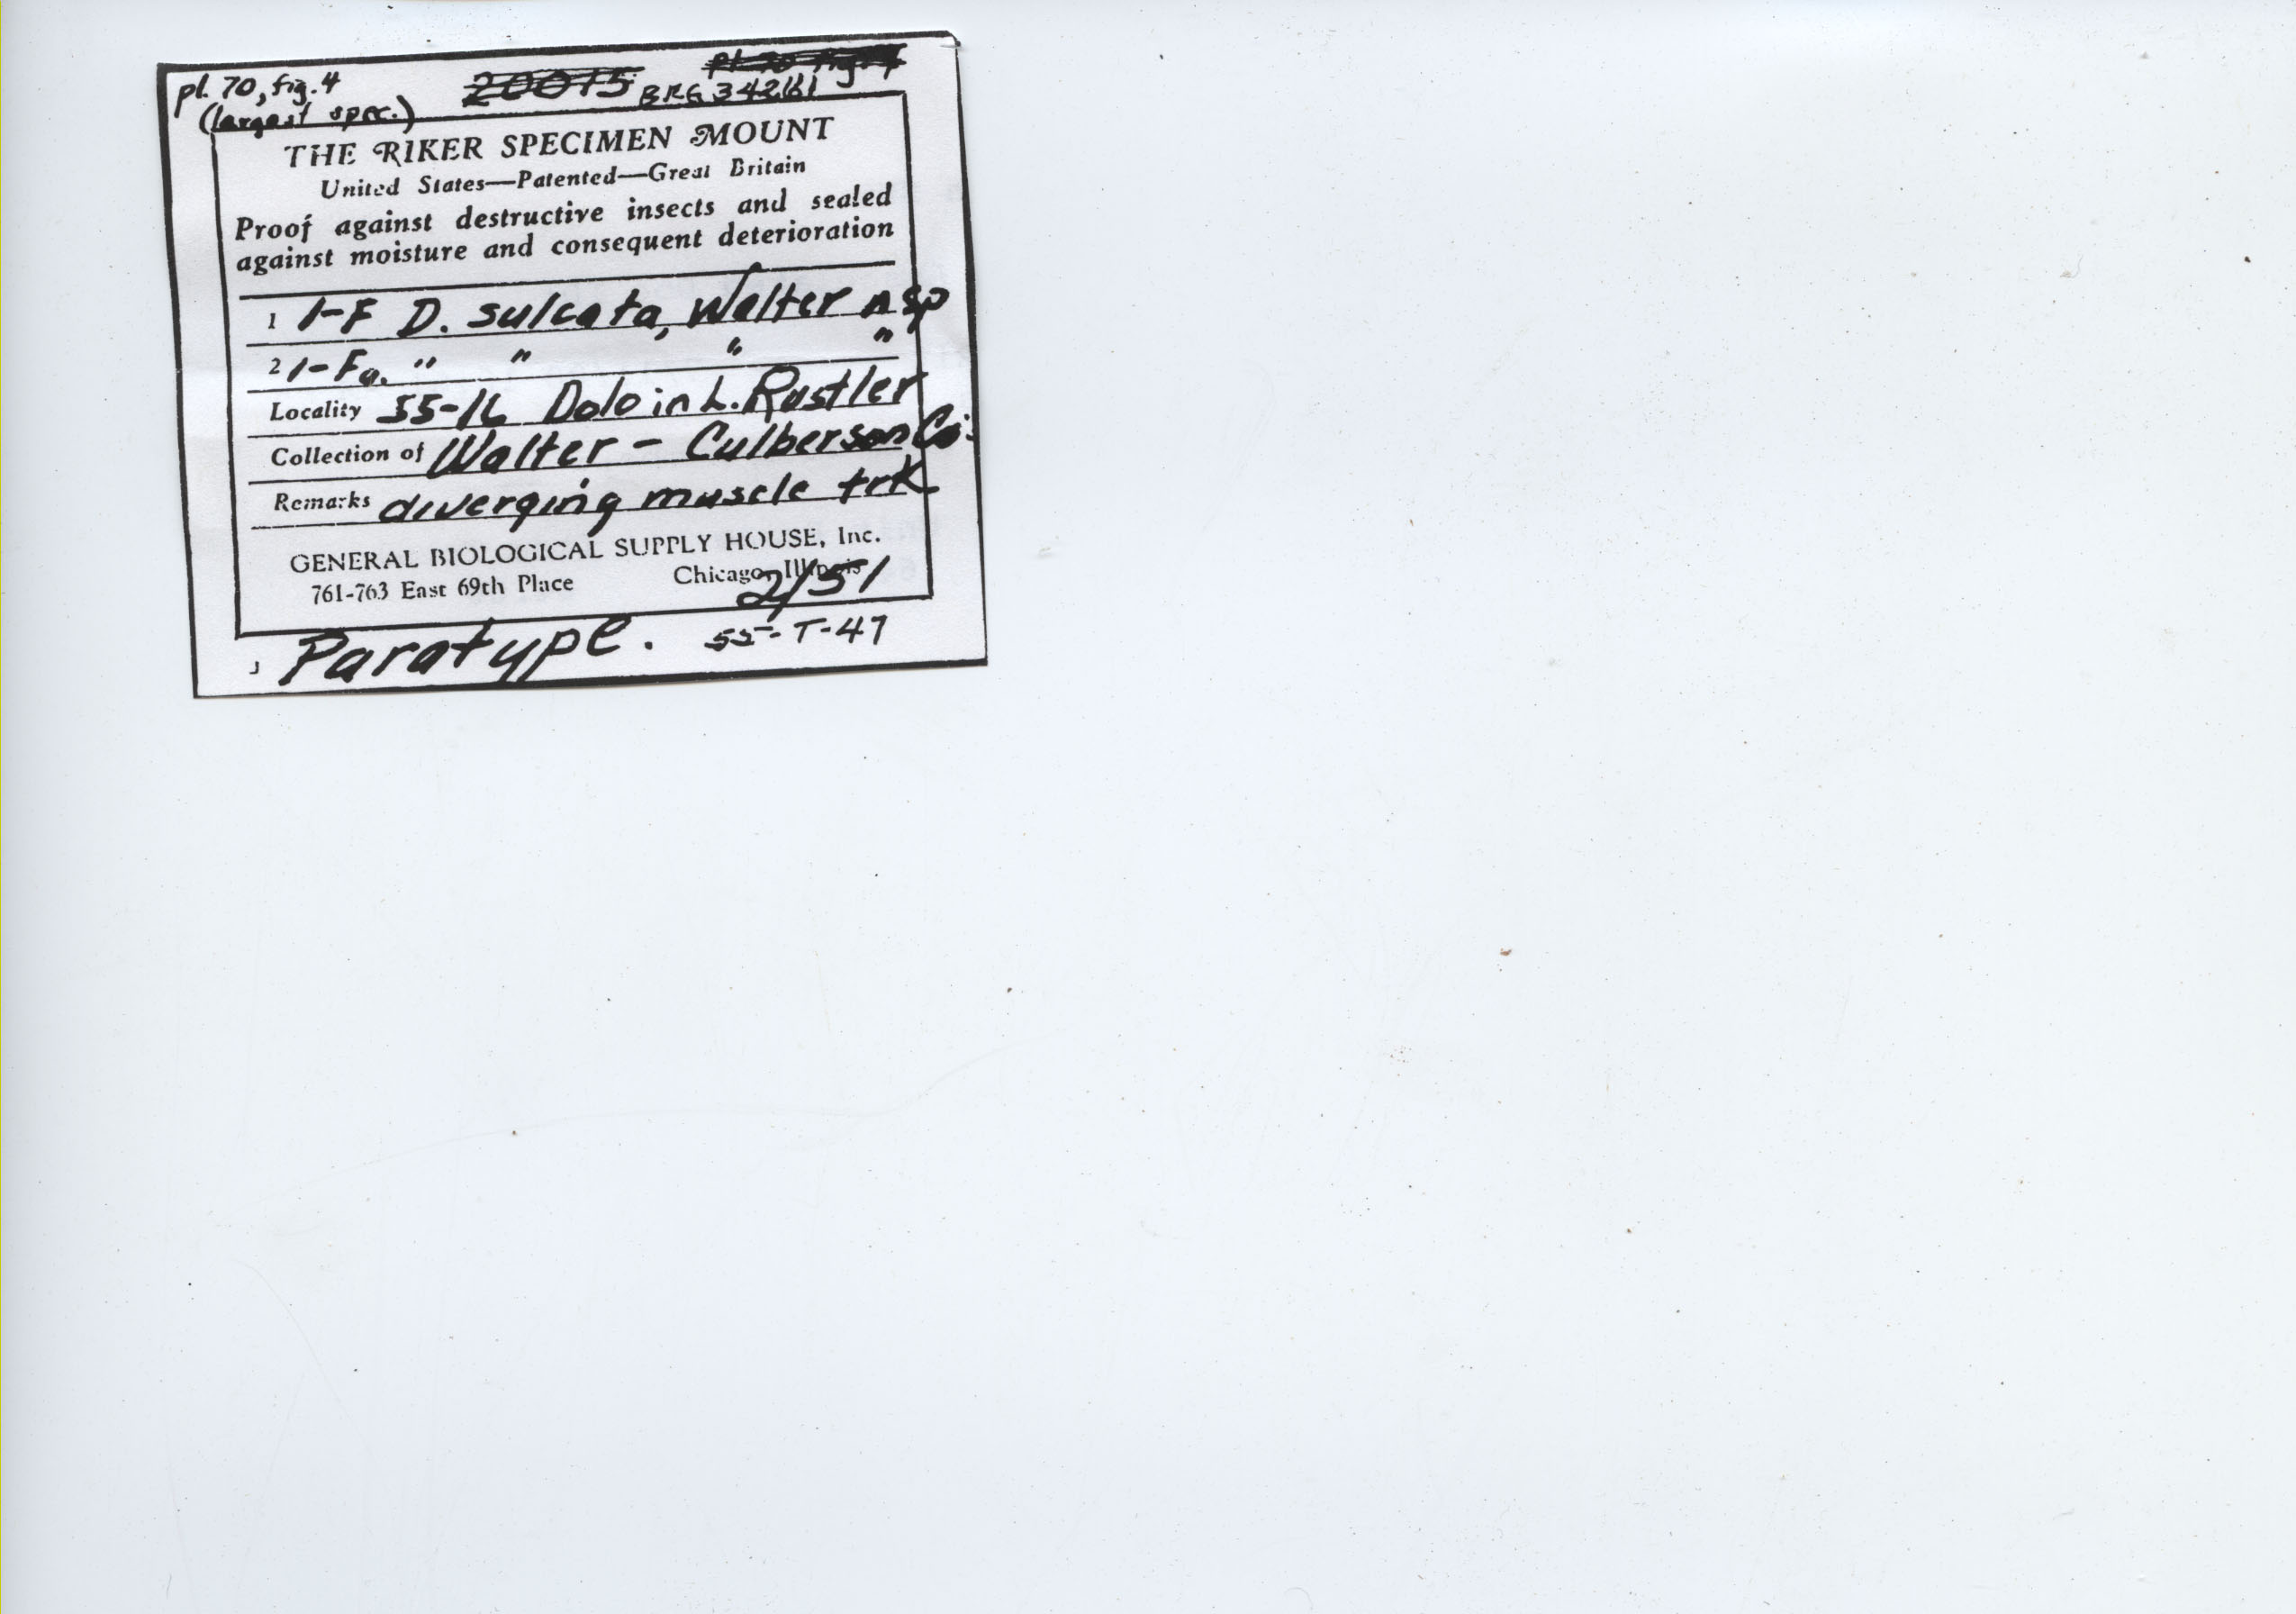 pl. 70, fig. 4
(largest spec.)
20015
pl 70 fig. 4
BRG 34261
THE RIKER SPECIMEN MOUNT
United States—Patented—Great Britain
Proof against destructive insects and sealed
against moisture and consequent deterioration
1 1-F D. sulcata, Walter n sp
2 1-Fa. " " " "
Locality 55-16 Dolo in L. Rustler
Collection of Walter - Culberson Co.
Remarks diverging muscle trk
GENERAL BIOLOGICAL SUPPLY HOUSE, Inc.
761-763 East 69th Place Chicago, Illinois
2/51
Paratype. 55-T-47